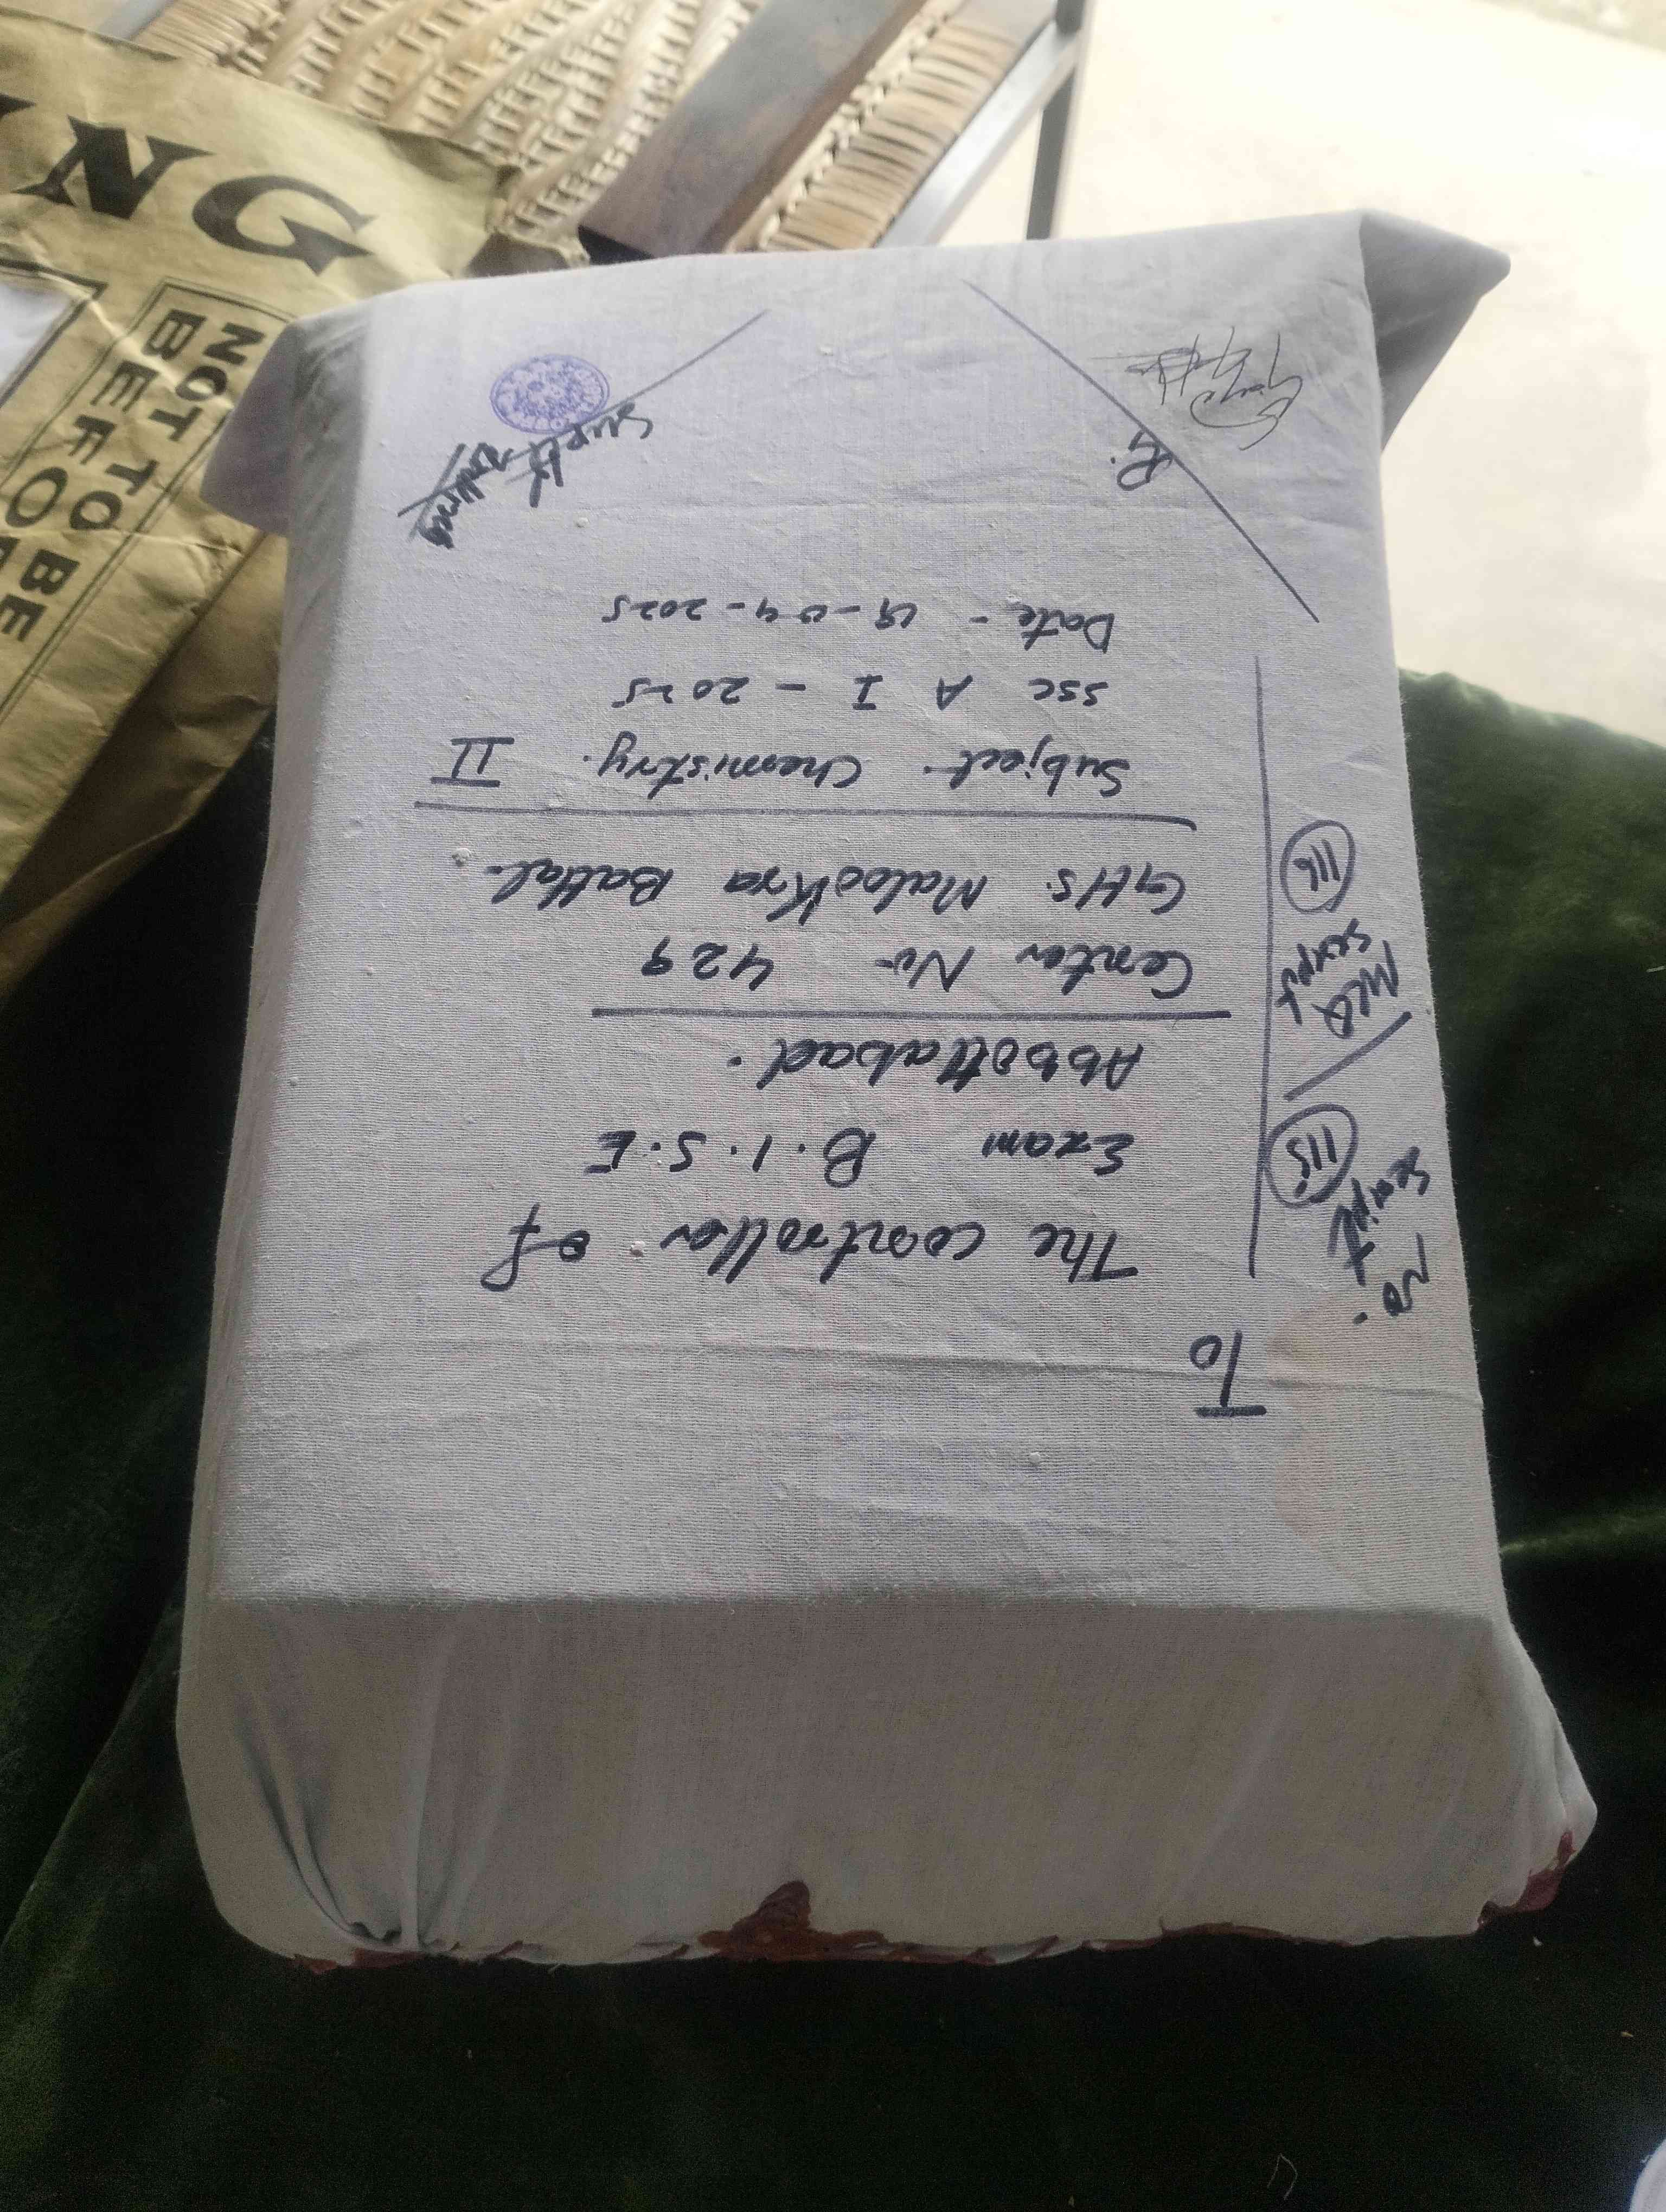 To
The controller of
Exam B.I.S.E
Abbottabad.
Center No 429
GHS Malookra Battal.
Subject. Chemistry. II
SSC A I - 2025
Date - 19-04-2025
No.
Script
115
MCQ
Script
116
Supdt
NG
NOT TO BE
BEFO